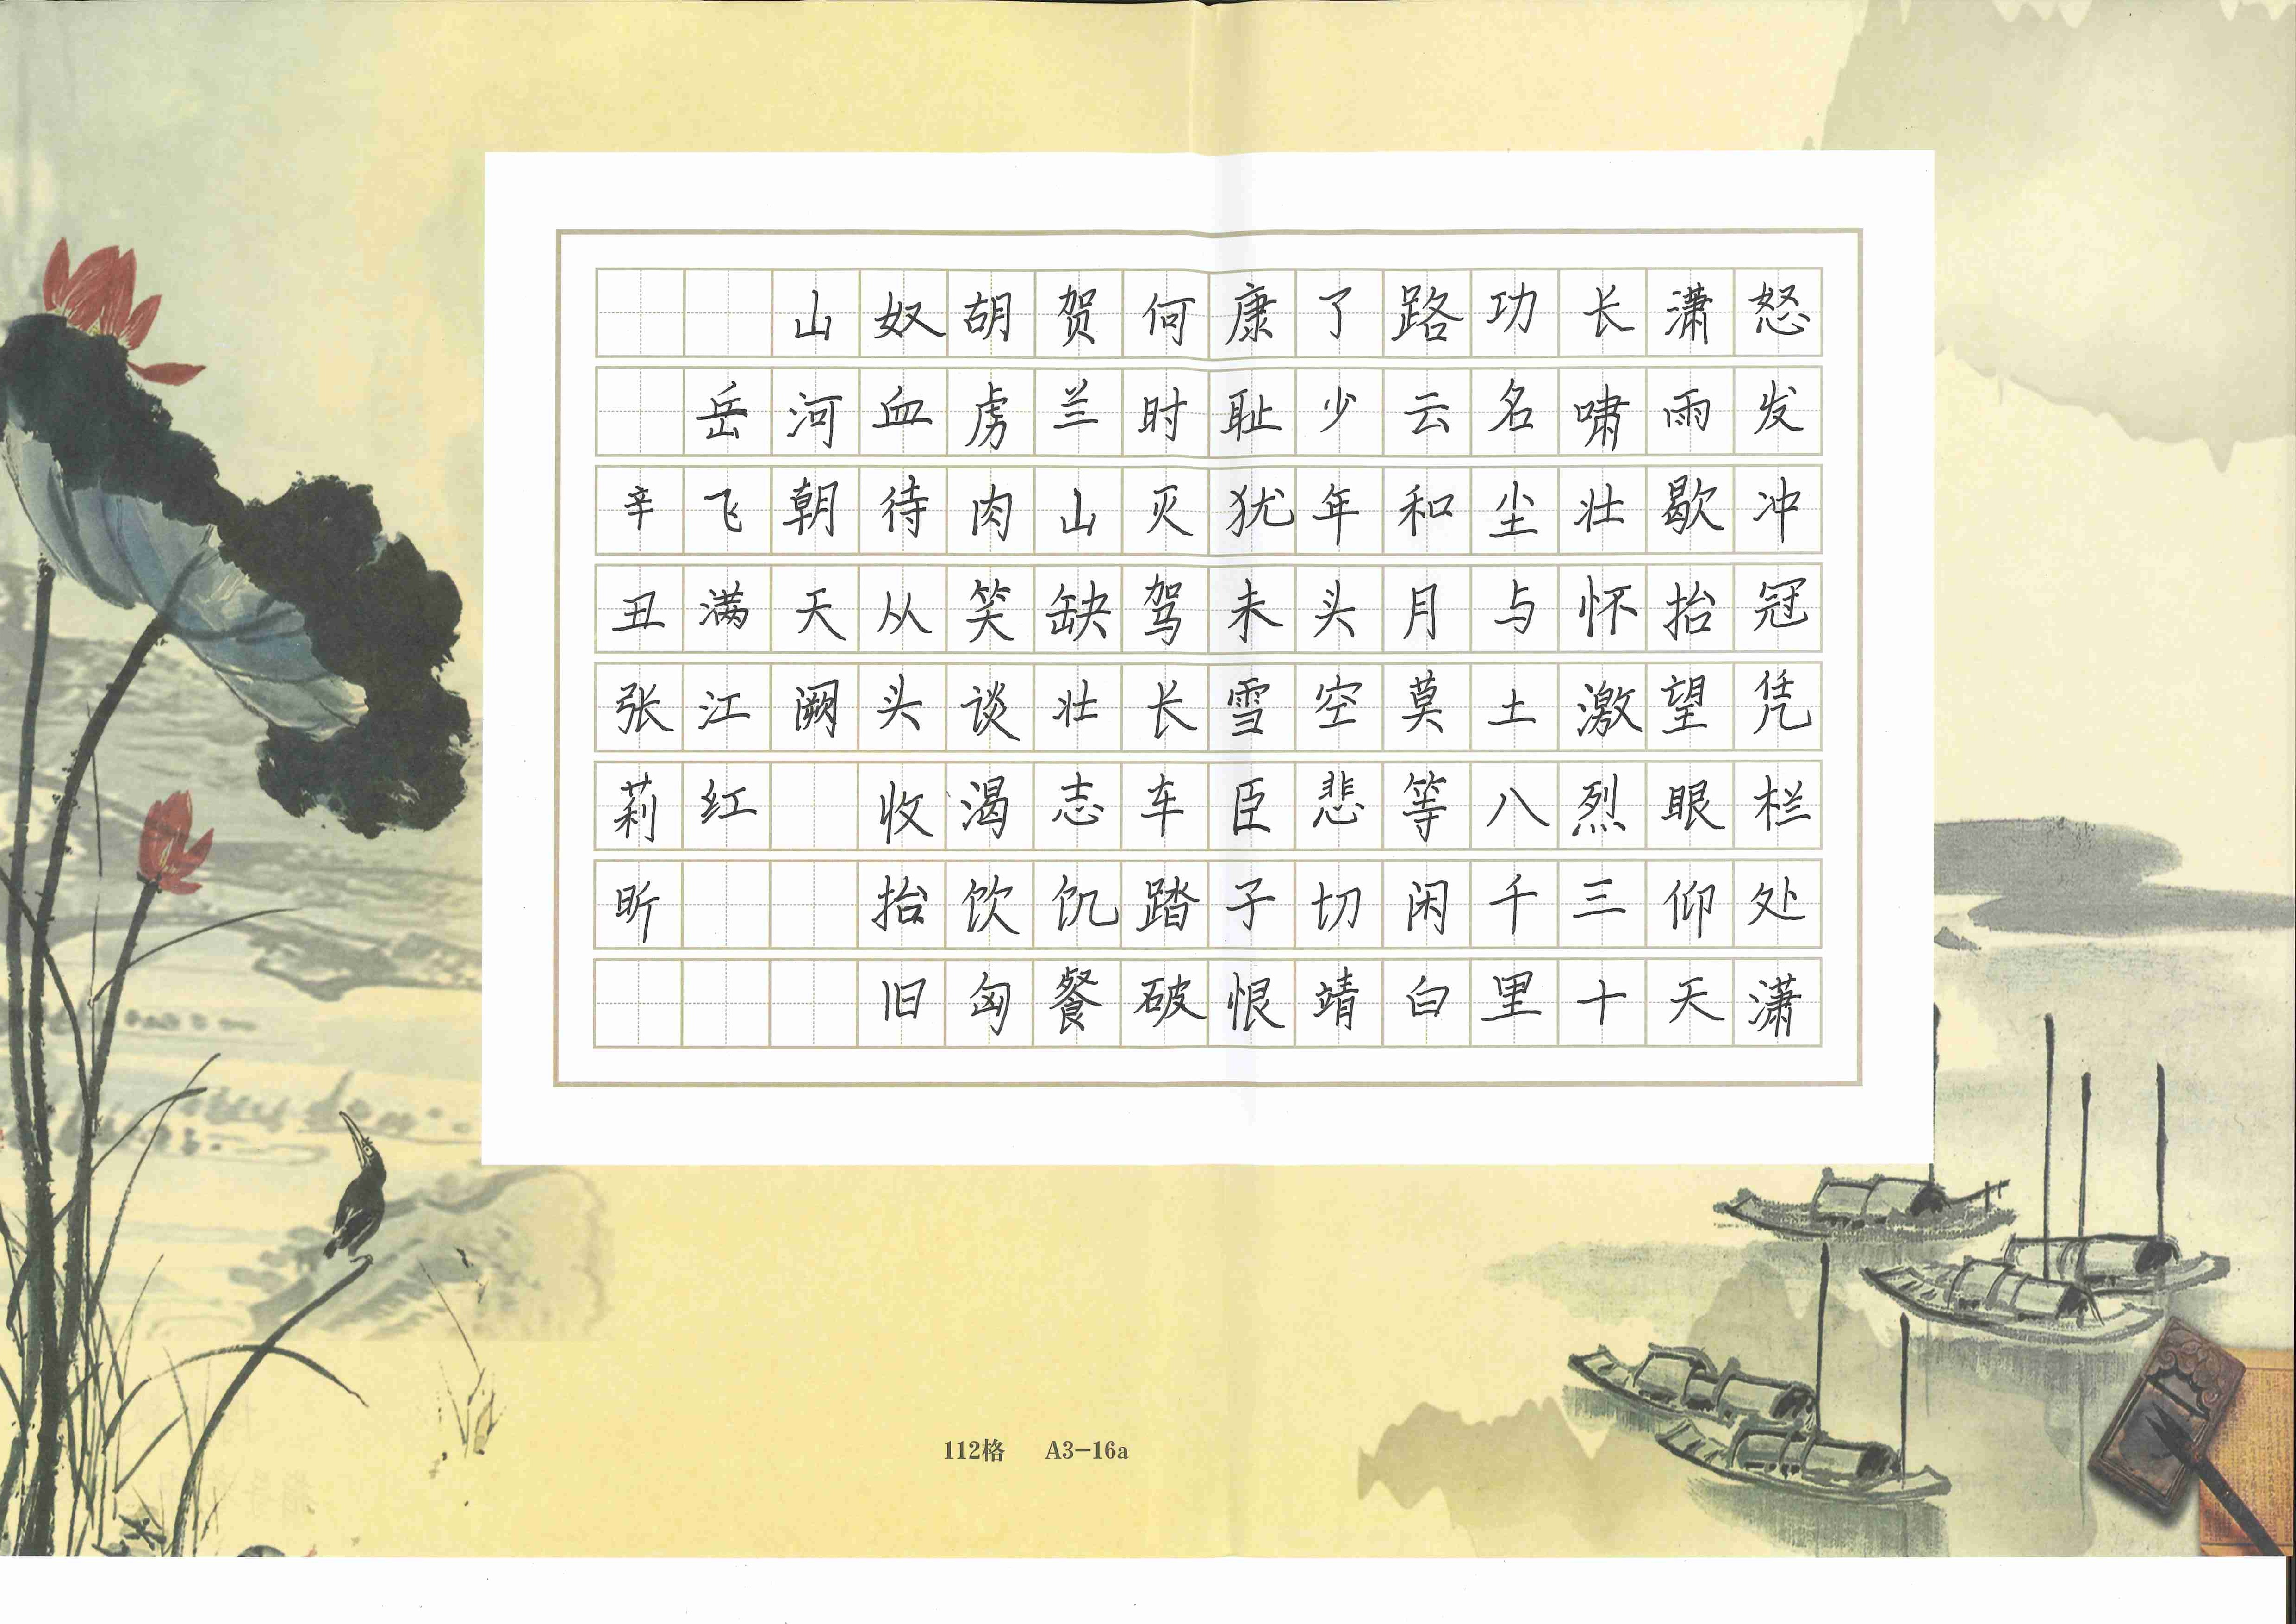 怒发冲冠凭栏处潇
潇雨歇抬望眼仰天
长啸壮怀激烈三十
功名尘与土八千里
路云和月莫等闲白
了少年头空悲切靖
康耻犹未雪臣子恨
何时灭驾长车踏破
贺兰山缺壮志饥餐
胡虏肉笑谈渴饮匈
奴血待从头收拾旧
山河朝天阙
岳飞满江红
辛丑张莉昕
112格 A3-16a